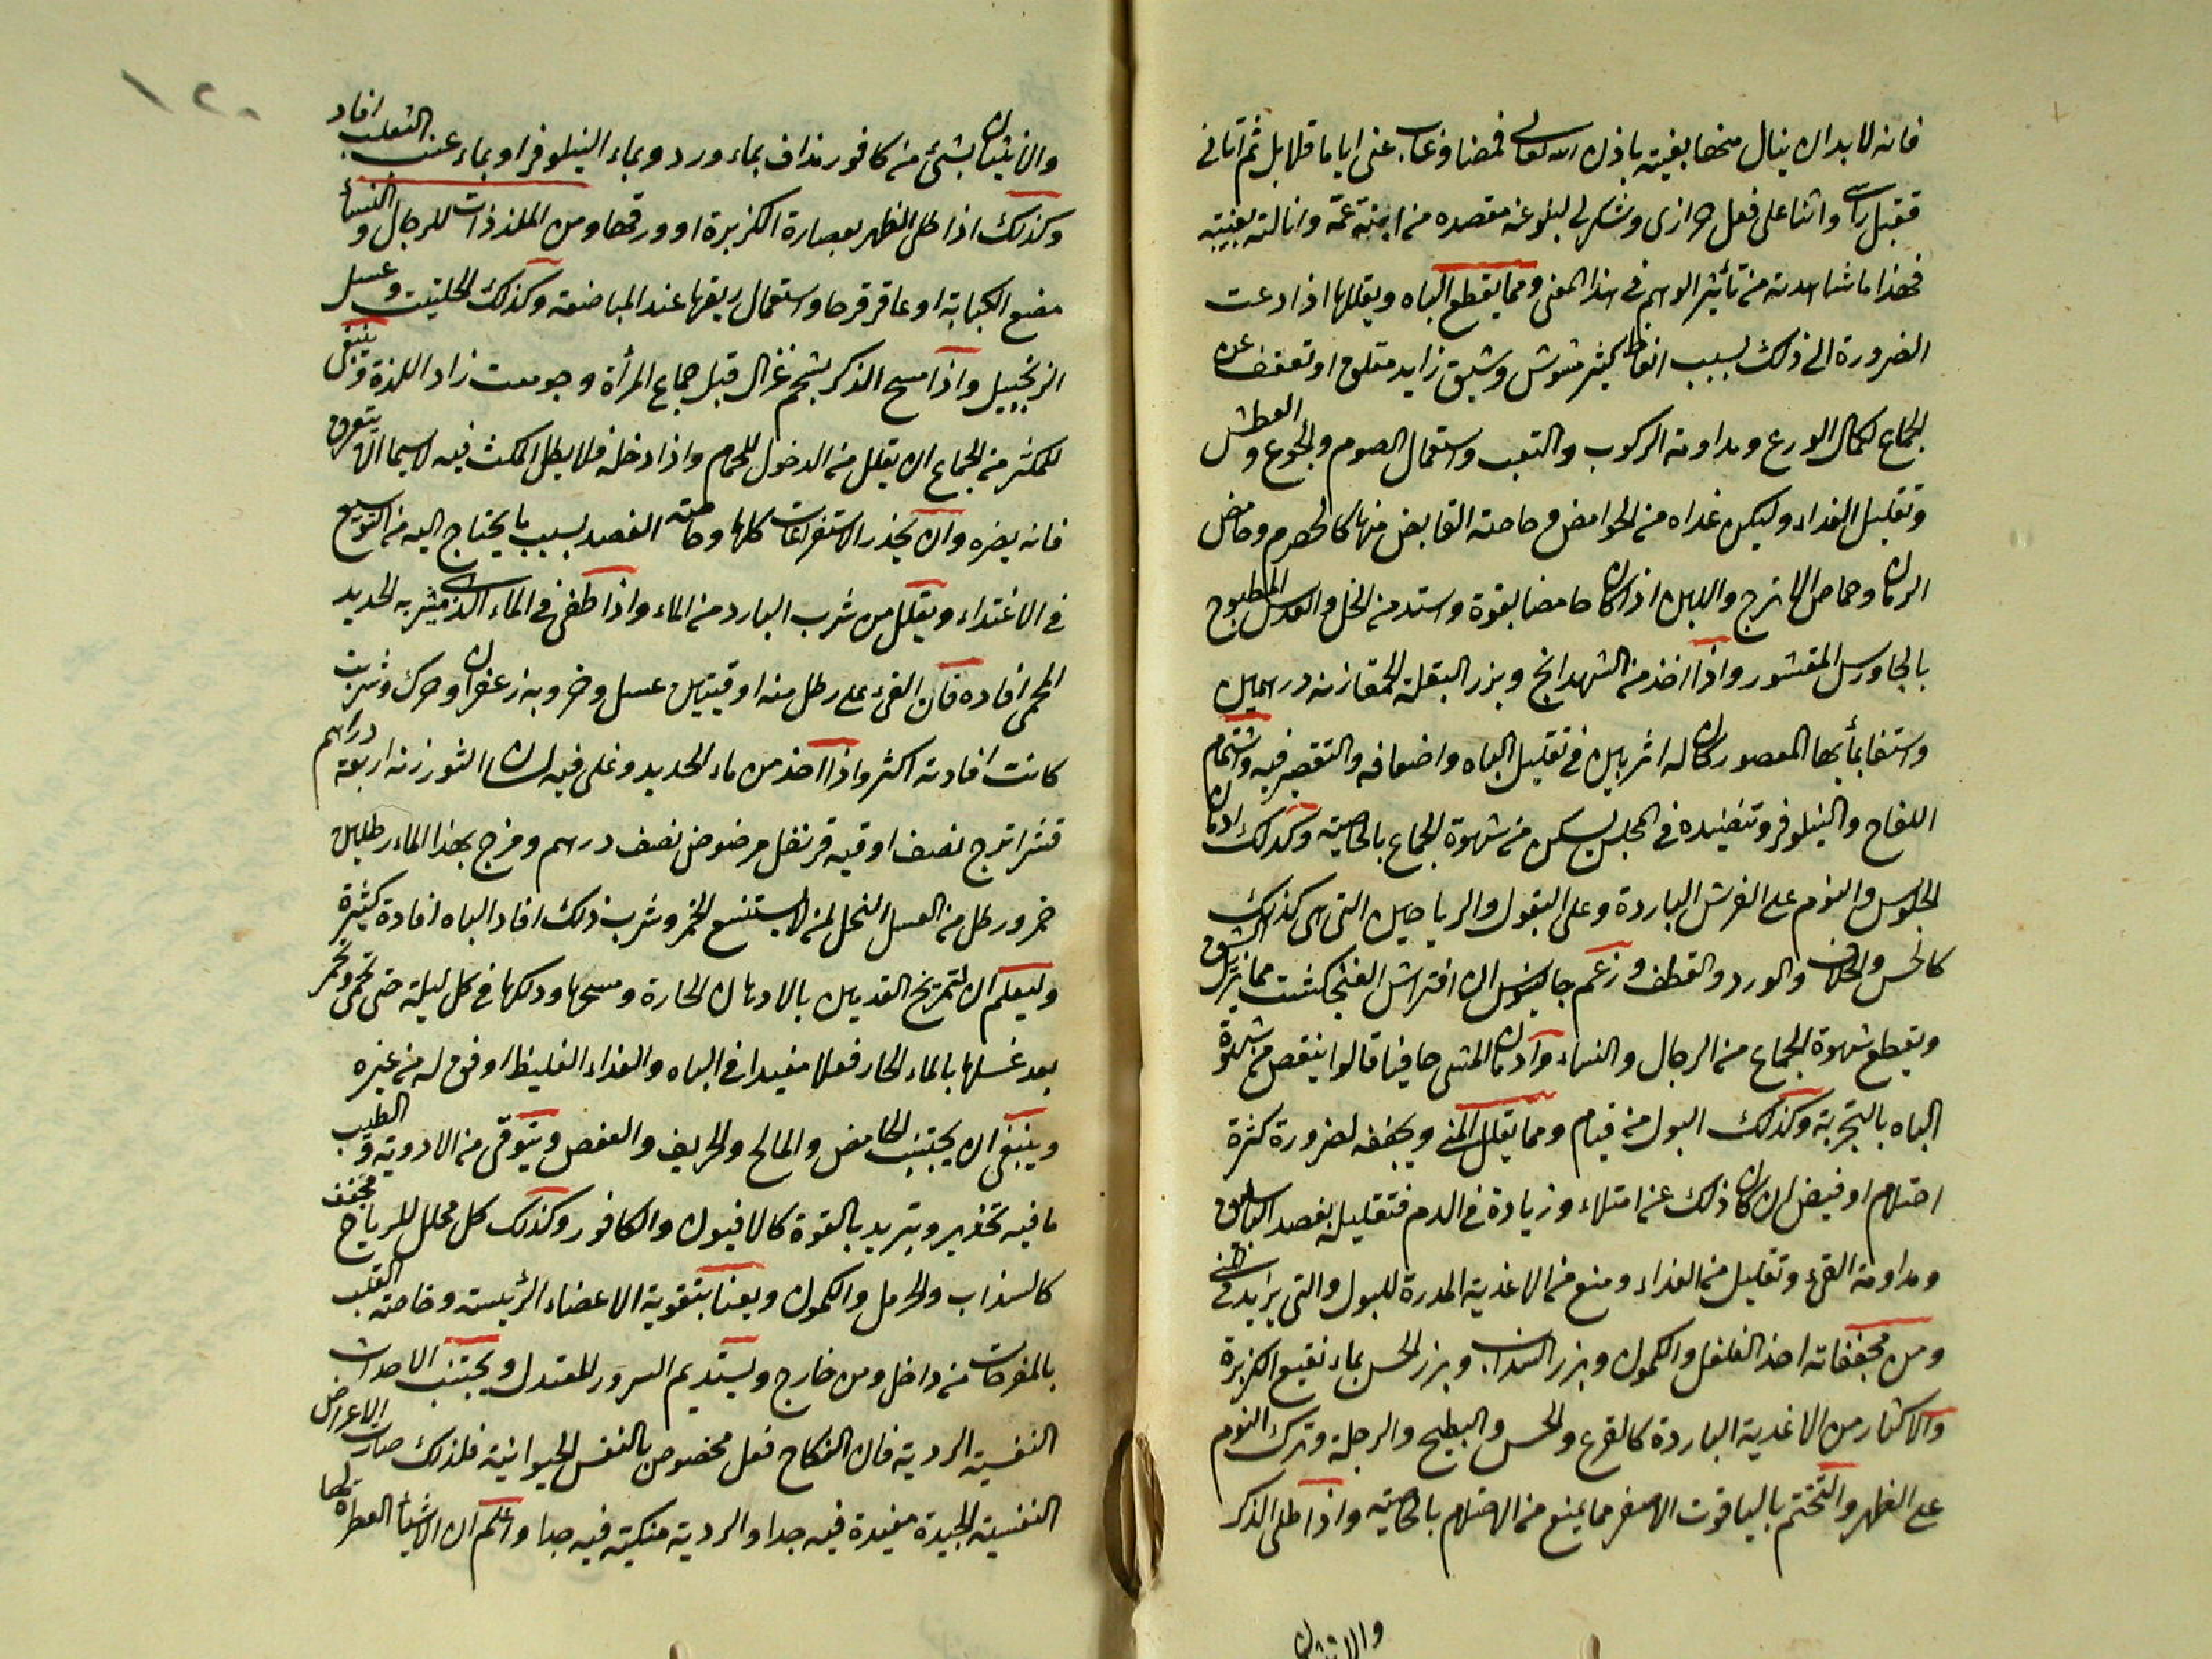 فانه لا بد ان ينال منها بغيته باذن الله تعالى فمضا وغاب عني اياما قلايل ثم اتاني
فقبل راسي واثنا على فعل حرازى وشكر لي لبلوغه مقصده من ابنة عمه وانالته بغيته
فهذا ما شاهدته من تأثير الوهم في هذا المعنى ومما يقطع الباه ويقللها اذا دعت
الضرورة الى ذلك بسبب انعاظ كثير مشوش وشبق زايد مقلق او تعفف عن
الجماع لكمال الورع ومداومة الركوب والتعب واستعمال الصوم والجوع والعطش
وتقليل الغذاء وليكن غذاه من الحوامض وخاصة القابض منها كالحصرم وحامض
الرمان وحماض الاترج واللبن اذا كان حامضا بقوة واستد من الخل والعدس المطبوخ
بالجاورس المقشور واذا اخذ من الشهدانج وبزر البقلة الحمقا زنه درهمين
واستفا بمأيها المعصور كان له اثر بين في تقليل الباه واضعافه والتقصير فيه واشتمام
اللفاح والنيلوفر وتنضيده في المجلس يسكن من شهوة الجماع بالخاصية وكذلك ادمان
الجلوس والنوم على الفرش الباردة وعلى البقول والرياحين التي هي كذلك
كالخس والخلاف والورد والقطف وزعم جالينوس ان افتراش الفنجكشت مما يزيل الشبق
ويقطع شهوة الجماع من الرجال والنساء وادمان المشي حافيا قالوا ينقص من شهوة
الباه بالتجربة وكذلك البول من قيام ومما يقلل المني ويجففه لضرورة كثرة
احتلام او فيض ان كان ذلك عن امتلاء وزيادة في الدم فتقليله بفصد الباسليق
ومداومة القيء وتقليل من الغذاء ومنع من الاغذية المدرة للبول والتي يزيد في المني
ومن مجففاته اخذ الفلفل والكمون وبزر السذاب وبزر الخس بماء نقيع الكزبرة
والاكثار من الاغذية الباردة كالقرع والخس والبطيخ والرجلة وترك النوم
على الظهر والتختم بالياقوت الاصفر مما يمنع من الاحتلام بالخاصيته واذا طلى الذكر
والانثيان
١٢٠
والانثيان بشئ من كافور مذاف بماء ورد وبماء النيلوفر او بماء عنب الثعلب افاد
وكذلك اذا طلى الظهر بعصارة الكزبرة او ورقها ومن الملذذات للرجال والنسأ
مضغ الكبابة او عاقر قرحا واستعمال ريقها عند المباضعة وكذلك الحلتيت وعسل
الزنجبيل واذا مسح الذكر بشحم غزال قبل جماع المرأة وجومعت زاد اللذة وينبغي
للمكثر من الجماع ان يقلل من الدخول للحمام واذا دخله فلا يطل المكث فيه لاسيما ان يتعرق
فانه يضره وان يحذر الاستفراغات كلها وخاصته الفصد بسبب ما يحتاج اليه من التوسيع
في الاغتداء ويقلل من شرب البارد من الماء واذا طفى في الماء الذي يشربه الحديد
المحمى افاده فان القى على رطل منه اوقيتين عسل وخروبه زعفران وحرك وشربت
كانت افادته اكثر واذا اخذ من ماء الحديد وغلى فيه لسان الثور زنه اربعة دراهم
قشر اترج نصف اوقيه قرنفل مرضوض نصف درهم ومزج بهذا الماء رطلين
خمر ورطل من العسل النحل لمن لا يستنسع الخمر وشرب ذلك افاد الباه افادة كثيرة
وليعلم ان لتمريخ القدمين بالادهان الحارة ومسحها ودلكها في كل ليلة حتى تحمى وتحمر
بعد غسلها بالماء الحار فعلا مفيدا في الباه والغذاء الغليظ اوفق له من غيره
وينبغي ان يجتنب الحامض والمالح والحريف والعفص ويتوقى من الادوية والطيب
ما فيه تخدير وتبريد بالقوة كالافيون والكافور وكذلك كل محلل للرياح مجفف
كالسذاب والحرمل والكمون ويعنا بتقوية الاعضاء الرئيسة وخاصته القلب
بالمفرحات من داخل ومن خارج ويستديم السرور المعتدل ويجتنب الاحداث
النفسية الردية فان النكاح فعل مخصوص بالنفس الحيوانية فلذلك صارت الاعراض
النفسية الجيدة مفيدة فيه جدا والردية منكية فيه جدا واعلم ان الاشيأ العطرة لها